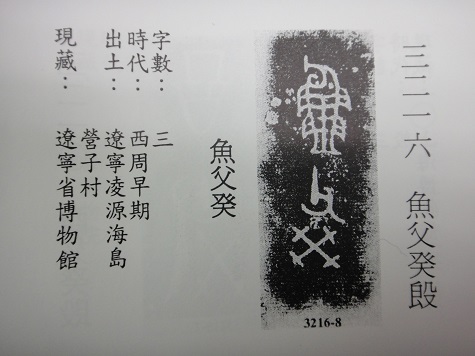 三二一六 魚父癸𣪘
魚父癸
3216-8
魚父癸
字數：三
時代：西周早期
出土：遼寧凌源海島
營子村
現藏：遼寧省博物館